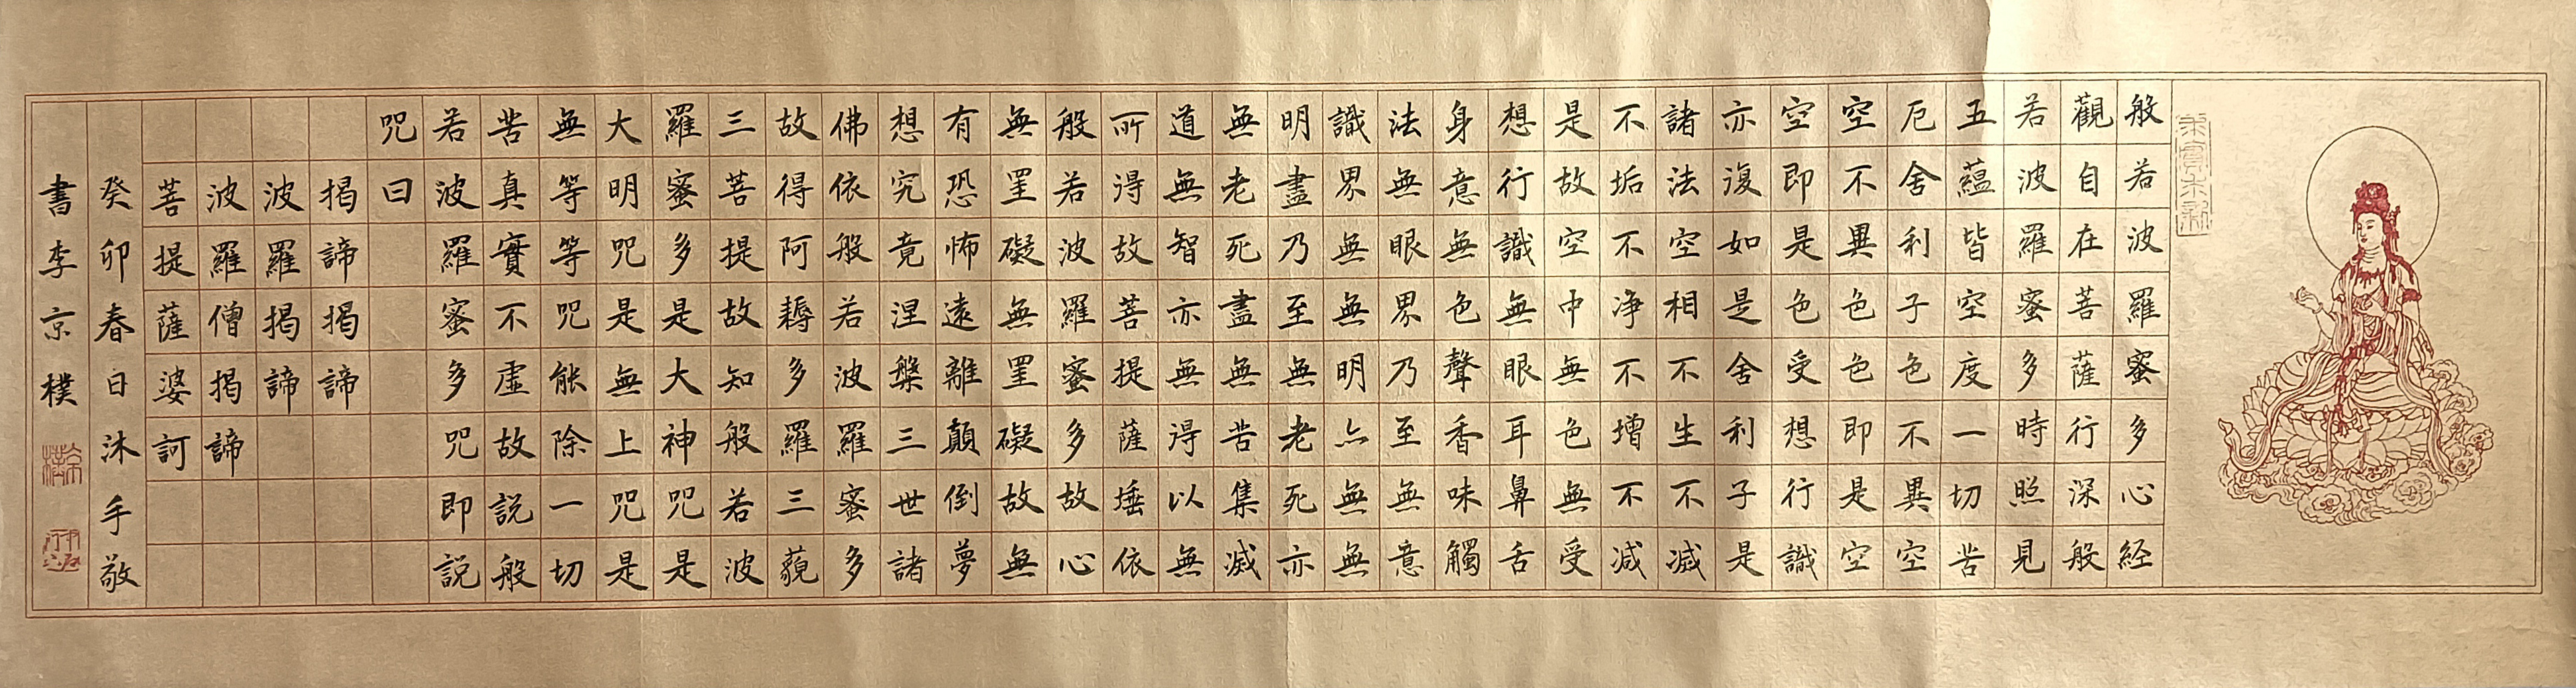 般若波羅蜜多心経
觀自在菩薩行深般
若波羅蜜多時照見
五蘊皆空度一切苦
厄舍利子色不異空
空不異色色即是空
空即是色受想行識
亦復如是舍利子是
諸法空相不生不滅
不垢不净不增不减
是故空中無色無受
想行識無眼耳鼻舌
身意無色聲香味觸
法無眼界乃至無意
識界無無明亦無無
明盡乃至無老死亦
無老死盡無苦集滅
道無智亦無得以無
所得故菩提薩埵依
般若波羅蜜多故心
無罣礙無罣礙故無
有恐怖遠離顛倒夢
想究竟涅槃三世諸
佛依般若波羅蜜多
故得阿耨多羅三藐
三菩提故知般若波
羅蜜多是大神咒是
大明咒是無上咒是
無等等咒能除一切
苦真實不虛故說般
若波羅蜜多咒即說
咒曰
揭諦揭諦
波羅揭諦
波羅僧揭諦
菩提薩婆訶
癸卯春日沐手敬
書李京樸